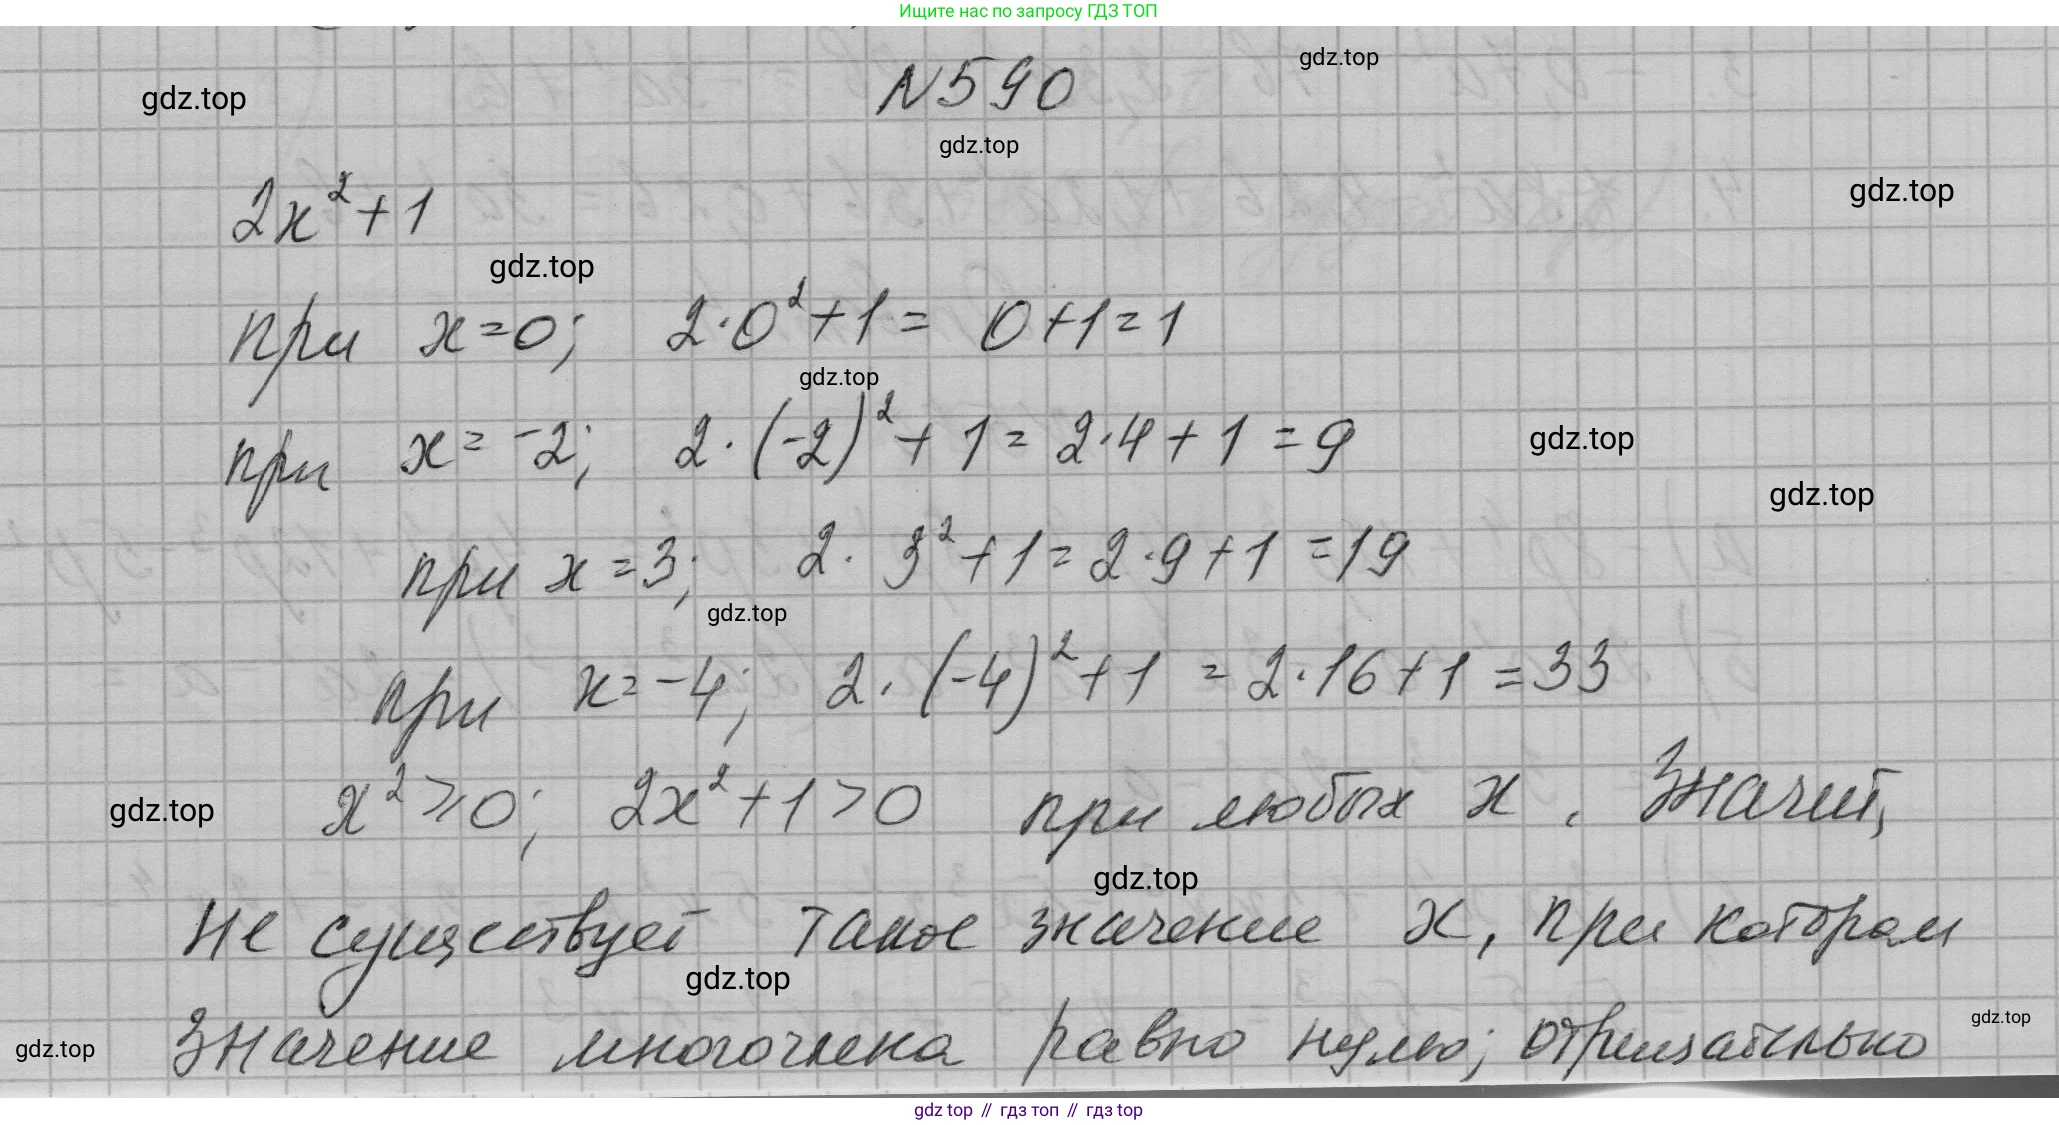 Ищите нас по запросу ГДЗ ТОП
gdz.top
№590
gdz.top
gdz.top
2x²+1
gdz.top
gdz.top
при x=0; 2·0²+1= 0+1=1
gdz.top
при x=-2; 2·(-2)²+1=2·4+1=9
gdz.top
gdz.top
при x=3; 2·3²+1=2·9+1=19
gdz.top
при x=-4; 2·(-4)²+1=2·16+1=33
x²≥0; 2x²+1>0 при любых x. Значит,
gdz.top
gdz.top
не существует такое значение x, при котором
gdz.top
значение многочлена равно нулю; отрицательно
gdz.top
gdz.top
gdz top // гдз топ // гдз top